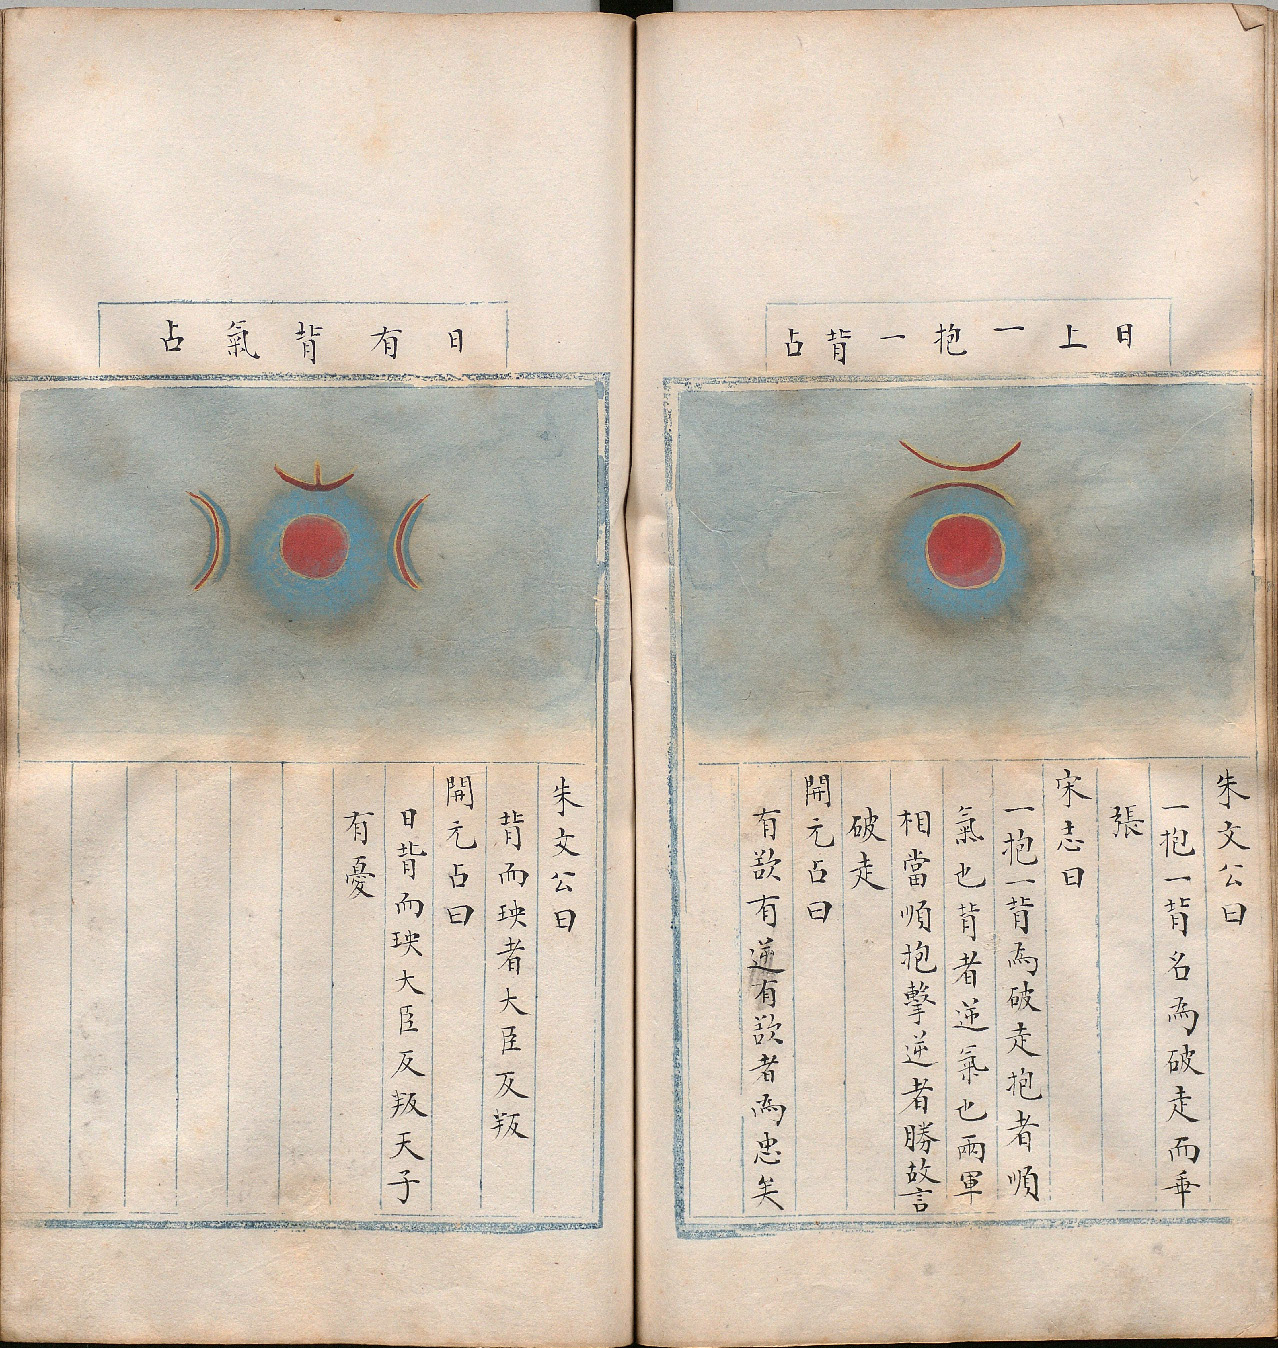 日上一抱一背占
朱文公曰
一抱一背名為破走而垂
張
宋志曰
一抱一背為破走抱者順
氣也背者逆氣也兩軍
相當順抱擊逆者勝故言
破走
開元占曰
有欲有逆有欲者為忠矣
日有背氣占
朱文公曰
背而玦者大臣反叛
開元占曰
日背而玦大臣反叛天子
有憂